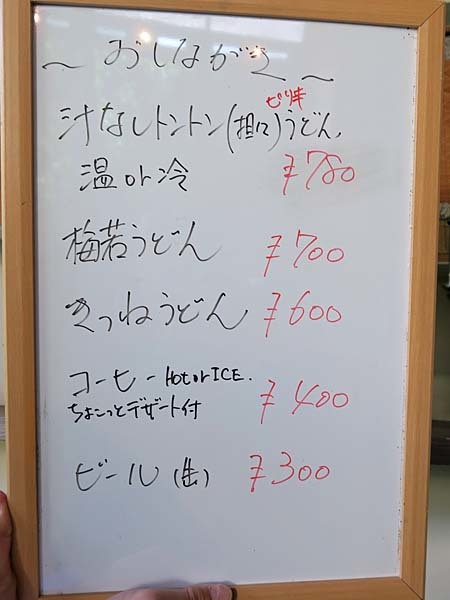 ～おしながき～
汁なしトントン(担々)うどん
温or冷 ¥780
梅若うどん ¥700
きつねうどん ¥600
コーヒー HotorICE. ¥400
ちょこっとデザート付
ビール(缶) ¥300